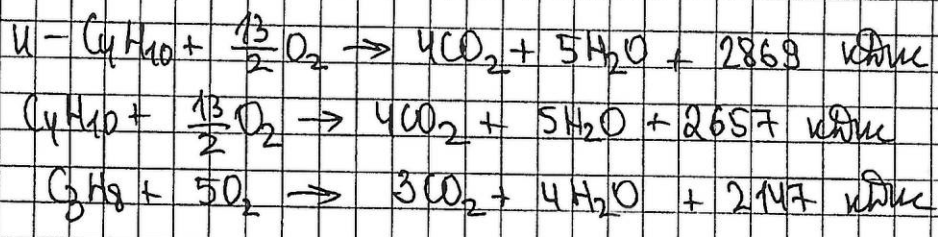 и - C₄H₁₀ + 13/2 O₂ → 4CO₂ + 5H₂O + 2869 кДж
C₄H₁₀ + 13/2 O₂ → 4CO₂ + 5H₂O + 2657 кДж
C₃H₈ + 5O₂ → 3CO₂ + 4H₂O + 2147 кДж